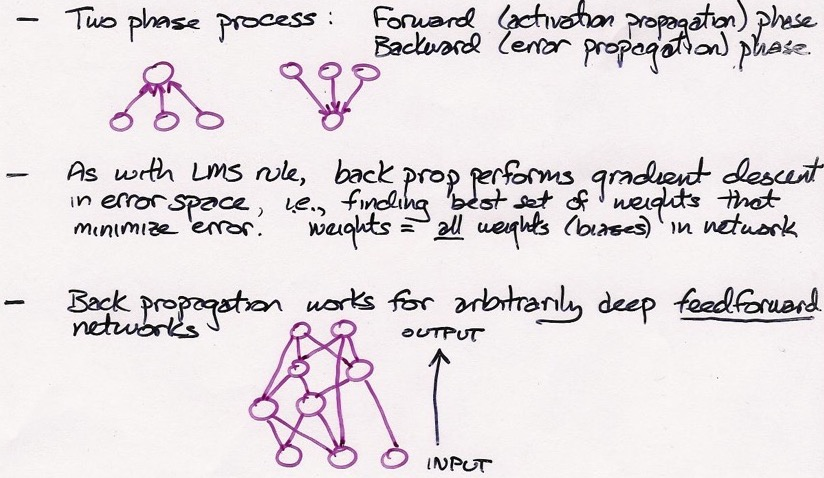 - Two phase process: Forward (activation propagation) phase
Backward (error propagation) phase.
- As with LMS rule, back prop performs gradient descent
in error space, i.e., finding best set of weights that
minimize error. weights = all weights (biases) in network
- Back propagation works for arbitrarily deep feedforward
networks
OUTPUT
INPUT